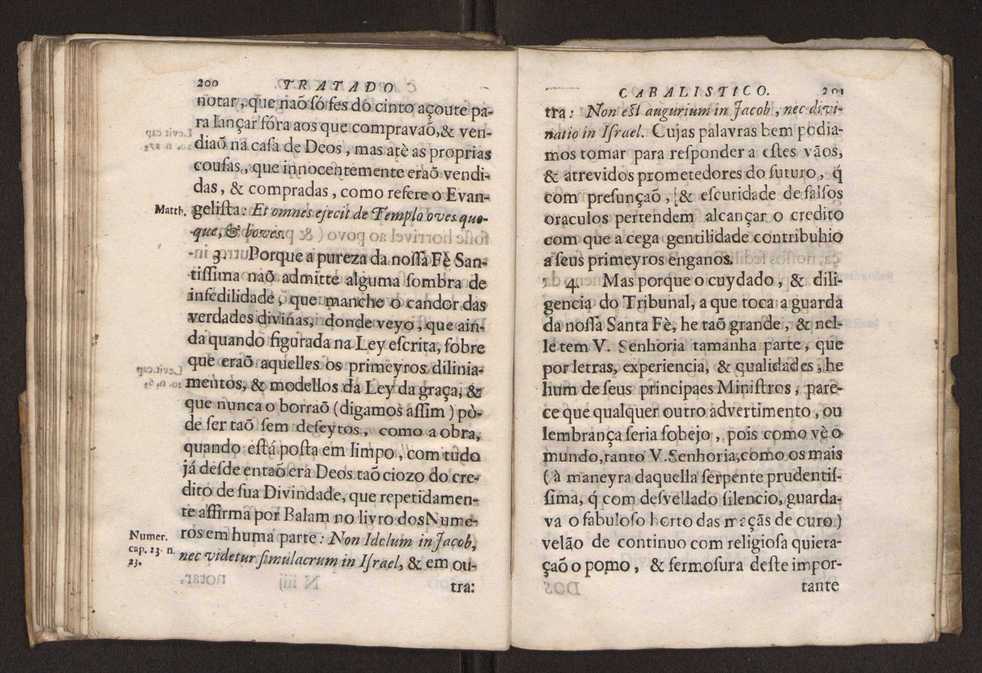 200 TRATADO
notar, que naõ só fes do cinto açoute pa-
ra lançar fóra aos que compravaõ, & ven-
diaõ na casa de Deos, mas atè as proprias
cousas, que innocentemente eraõ vendi-
das, & compradas, como refere o Evan-
Matth. gelista: Et omnes ejecit de Templo oves quo-
que, & boves.
3. Porque a pureza da nossa Fè San-
tissima naõ admitte alguma sombra de
infedilidade, que manche o candor das
verdades divinas, donde veyo, que ain-
da quando figurada na Ley escrita, sobre
que eraõ aquelles os primeyros dilinia-
mentos, & modellos da Ley da graça, &
que nunca o borraõ (digamos assim) pò-
de ser taõ sem defeytos, como a obra,
quando está posta em limpo, com tudo
já desde entaõ era Deos taõ ciozo do cre-
dito de sua Divindade, que repetidamen-
te affirma por Balam no livro dos Nume-
Numer. cap. 23. n. 23.
ros em huma parte: Non Idolum in Jacob,
nec videtur simulacrum in Israel, & em ou-
tra:
CABALISTICO. 201
tra: Non est augurium in Jacob, nec divi-
natio in Israel. Cujas palavras bem podia-
mos tomar para responder a estes vãos,
& atrevidos prometedores do futuro, q̃
com presunçaõ, & escuridade de falsos
oraculos pertendem alcançar o credito
com que a cega gentilidade contribuhio
a seus primeyros enganos.
4. Mas porque o cuydado, & dili-
gencia do Tribunal, a que toca a guarda
da nossa Santa Fè, he taõ grande, & nel-
le tem V. Senhoria tamanha parte, que
por letras, experiencia, & qualidades, he
hum de seus principaes Ministros, pare-
ce que qualquer outro advertimento, ou
lembrança seria sobejo, pois como vè o
mundo, tanto V. Senhoria, como os mais
(à maneyra daquella serpente prudentis-
sima, q̃ com desvellado silencio, guarda-
va o fabuloso horto das maçãs de ouro)
velão de continuo com religiosa quieta-
çaõ o pomo, & fermosura deste impor-
tante